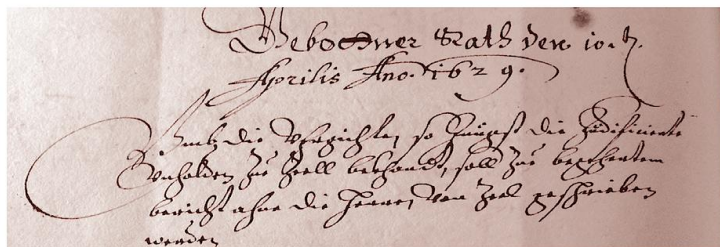 Gebottner Rath den 10. t.
Aprilis Ano. 1629.
Umb die Vergichten, so jüngst die Justificierte
Unholden zu Zell bekhandt, soll zu begehrtem
bericht ahn die Herren von Zell geschrieben
werden